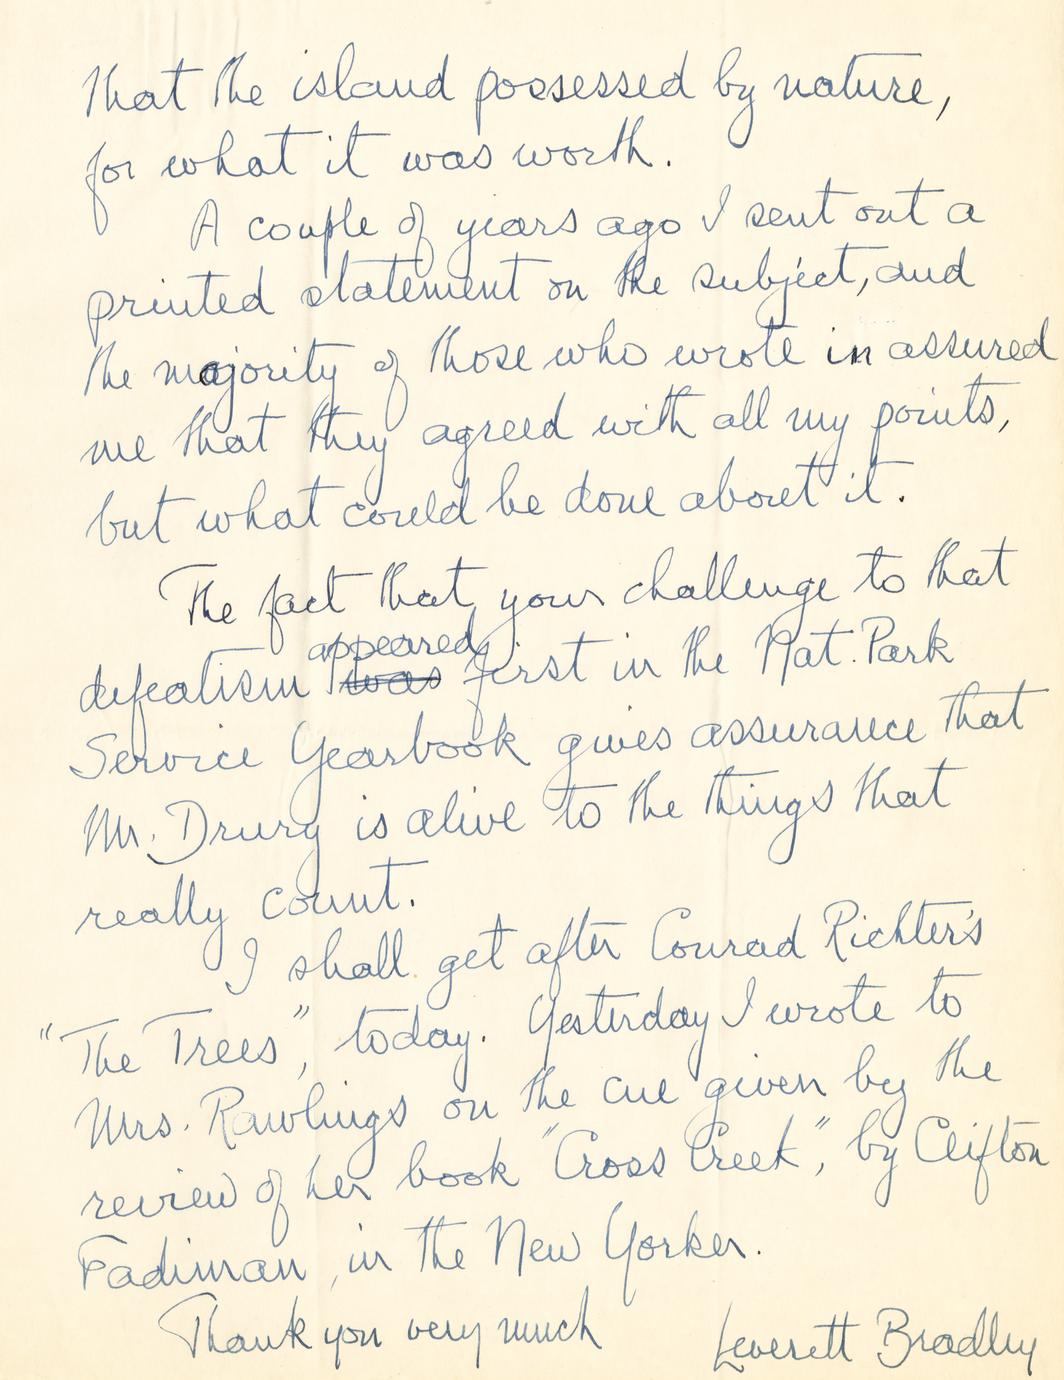 that the island possessed by nature,
for what it was worth.
A couple of years ago I sent out a
printed statement on the subject, and
the majority of those who wrote in assured
me that they agreed with all my points,
but what could be done about it.
The fact that your challenge to that
appeared
defeatism was first in the Nat. Park
Service Yearbook gives assurance that
Mr. Drury is alive to the things that
really count.
I shall get after Conrad Richter's
"The Trees", today. Yesterday I wrote to
Mrs. Rawlings on the cue given by the
review of her book "Cross Creek", by Clifton
Fadiman, in the New Yorker.
Thank you very much Leverett Bradley